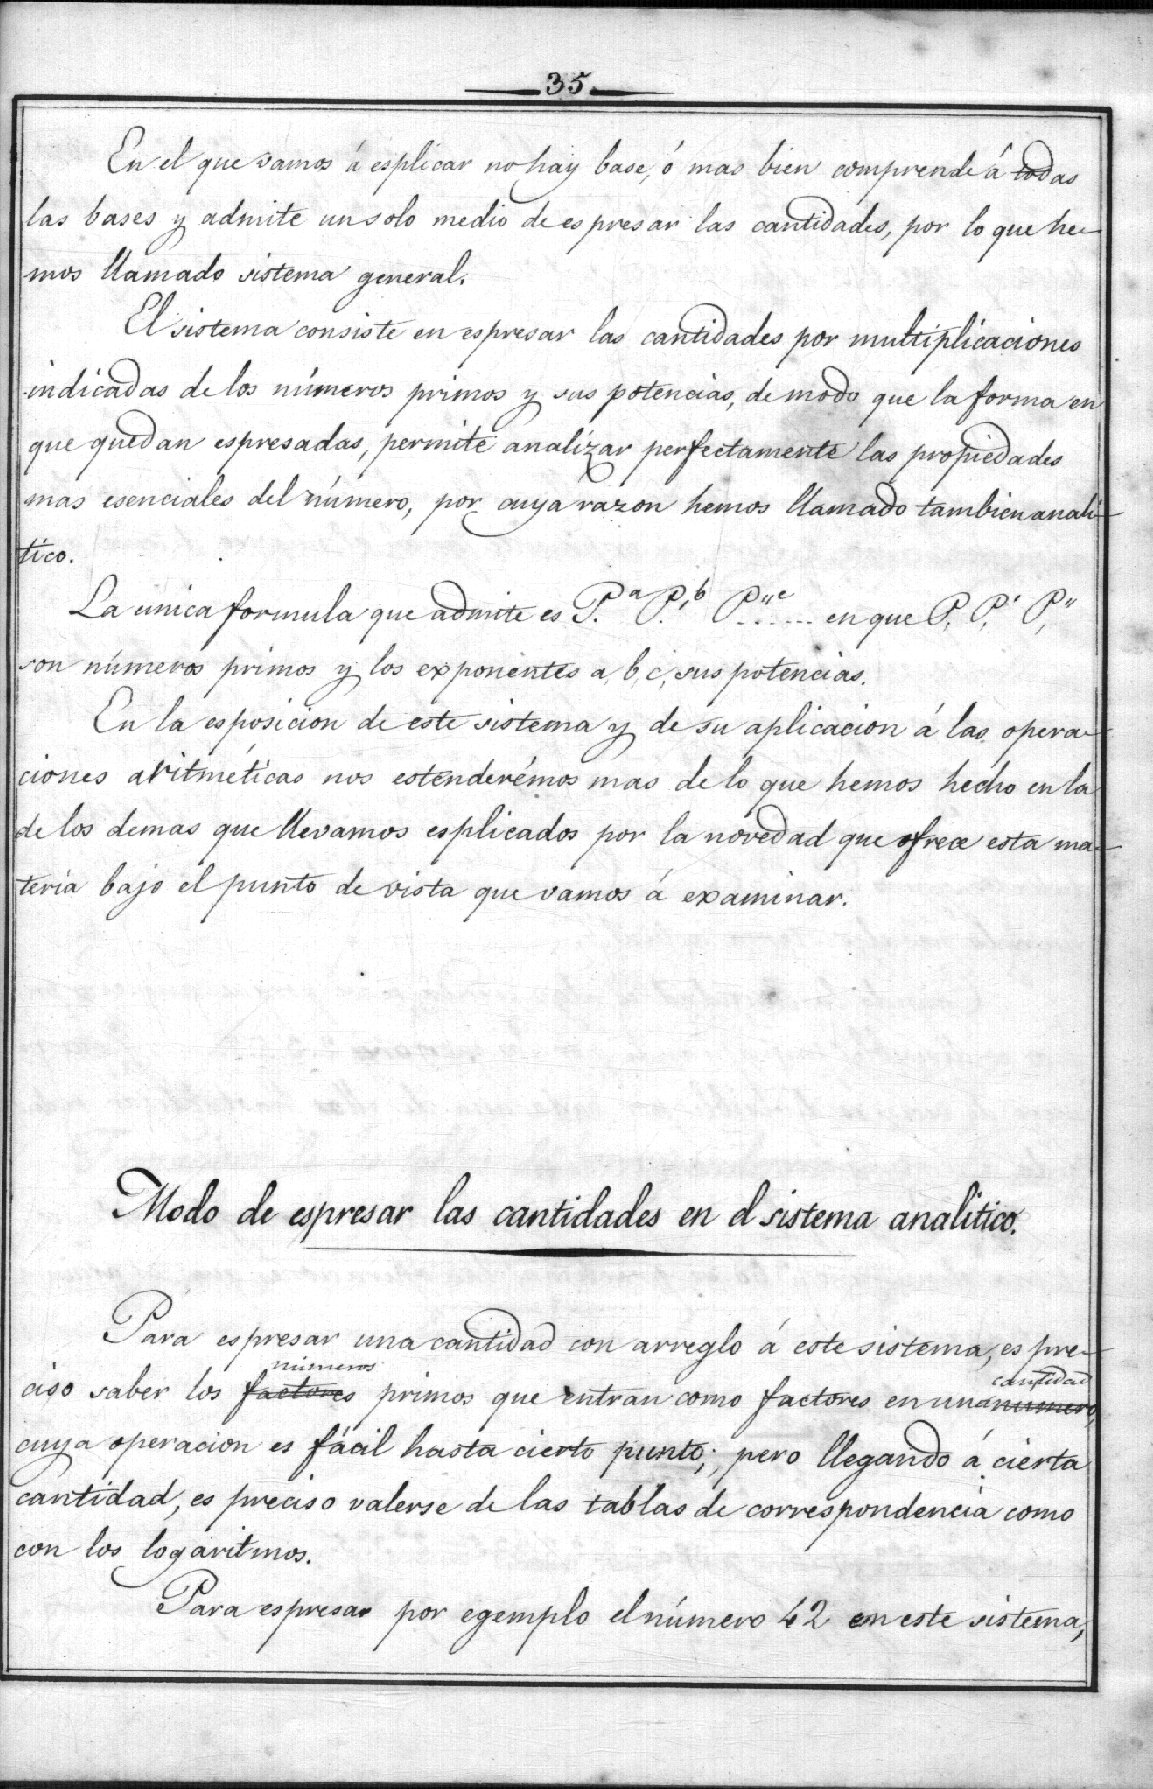 35.
En el que vamos á esplicar no hay base, ó mas bien comprende á todas
las bases y admite un solo medio de espresar las cantidades, por lo que he-
mos llamado sistema general.
El sistema consiste en espresar las cantidades por multiplicaciones
indicadas de los números primos y sus potencias, de modo que la forma en
que quedan espresadas, permite analizar perfectamente las propiedades
mas esenciales del número, por cuya razon hemos llamado tambien anali-
tico.
La unica formula que admite es P.ᵃ P.'ᵇ P''ᶜ ....... en que P, P,' P,''
son números primos y los exponentes a, b, c, sus potencias.
En la esposicion de este sistema y de su aplicacion á las opera-
ciones aritméticas nos estenderémos mas de lo que hemos hecho en la
de los demas que llevamos esplicados por la novedad que ofrece esta ma-
teria bajo el punto de vista que vamos á examinar.
Modo de espresar las cantidades en el sistema analitico.
Para espresar una cantidad con arreglo á este sistema, es pre-
números
ciso saber los factores primos que entran como factores en una numero
cantidad
cuya operacion es fácil hasta cierto punto; pero llegando á cierta
cantidad, es preciso valerse de las tablas de correspondencia como
con los logaritmos.
Para espresar por egemplo el número 42 en este sistema,